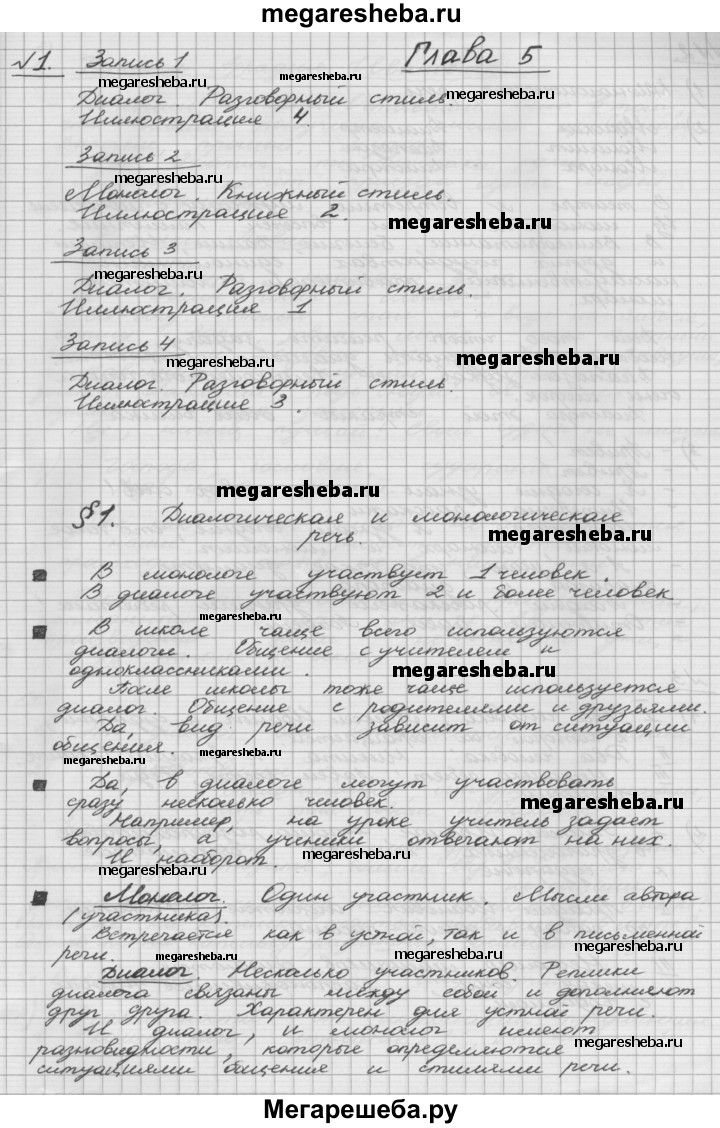 megaresheba.ru
№1. Запись 1 Глава 5
megaresheba.ru
megaresheba.ru
Диалог. Разговорный стиль.
megaresheba.ru
Иллюстрация 4.
Запись 2
megaresheba.ru
Монолог. Книжный стиль.
Иллюстрация 2.
megaresheba.ru
Запись 3
megaresheba.ru
Диалог. Разговорный стиль.
Иллюстрация 1
Запись 4
megaresheba.ru
megaresheba.ru
Диалог. Разговорный стиль.
Иллюстрация 3.
megaresheba.ru
§1. Диалогическая и монологическая
речь.
megaresheba.ru
В монологе участвует 1 человек.
В диалоге участвуют 2 и более человек
megaresheba.ru
В школе чаще всего используются
диалоги. Общение с учителем и
одноклассниками.
megaresheba.ru
После школы тоже чаще используется
диалог. Общение с родителями и друзьями.
Да, вид речи зависит от ситуации
общения.
megaresheba.ru
megaresheba.ru
Да, в диалоге могут участвовать
сразу несколько человек.
megaresheba.ru
Например, на уроке учитель задает
вопросы, а ученики отвечают на них.
И наоборот.
megaresheba.ru
megaresheba.ru
Монолог. Один участник. Мысли автора
(участника).
Встречается как в устной, так и в письменной
речи.
megaresheba.ru
megaresheba.ru
megaresheba.ru
Диалог. Несколько участников. Реплики
диалога связаны между собой и дополняют
друг друга. Характерен для устной речи.
И диалог, и монолог имеют
разновидности, которые определяются
megaresheba.ru
ситуациями общения и стилями речи.
megaresheba.ru
Мегарешеба.ру